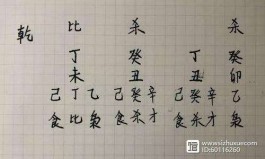 乾 比 杀 杀
丁 癸 丁 癸
未 丑 丑 卯
己丁乙 己癸辛 己癸辛 乙
食比枭 食杀才 食杀才 枭
www.sizhuxue.com
ID:60116260